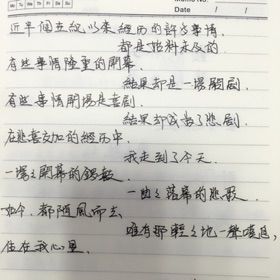 Mo Tu We Th Fr Sa Su
Memo No.
Date / /
近半個世紀以來經历的許多事情,
都是始料未及的
有些事情隆重的開幕,
結果却是一場鬧剧
有些事情開場是喜剧,
結果却成了悲剧.
在悲喜交加的經历中,
我走到了今天
一場又開幕的錦
一曲又落幕的悲歌.
如今,都随風而去,
唯有那輕之地一聲嘆息,
住在我心里.